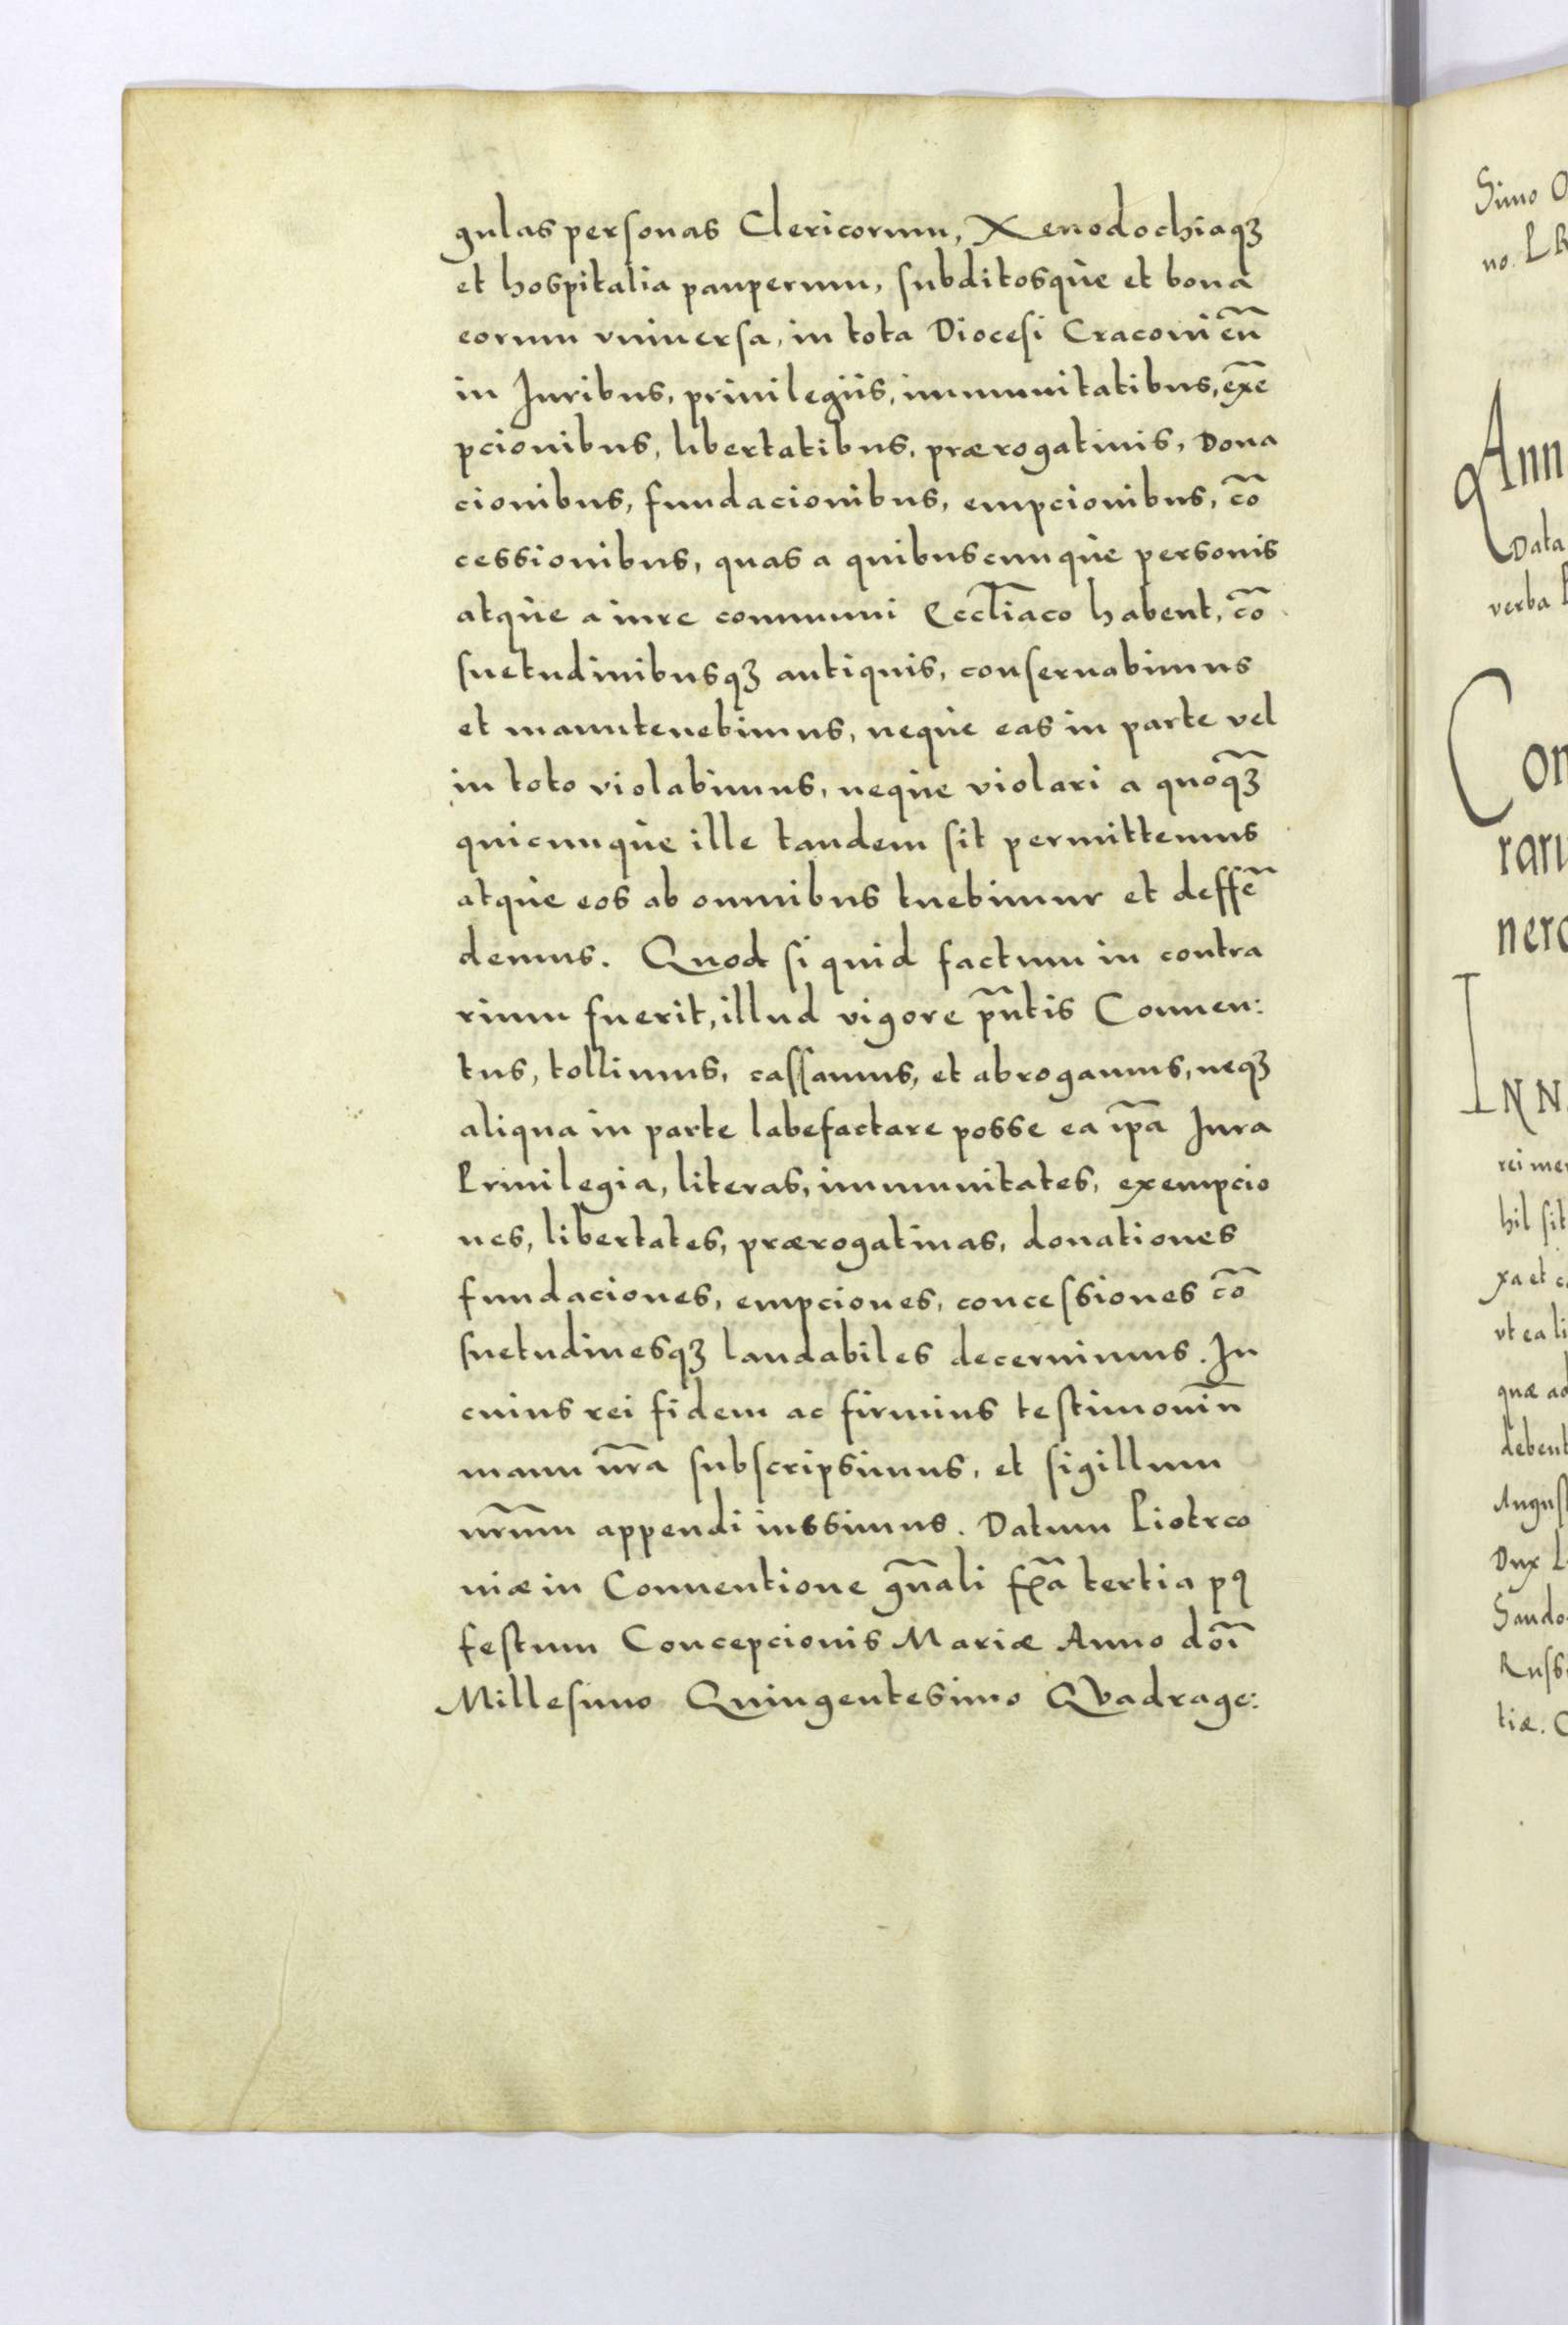 gulas personas Clericorum, Xenodochiaqꝫ
et hospitalia pauperum, subditosque et bona
eorum vniuersa, in tota Diocesi Cracouień
in Iuribus, priuilegiis, immunitatibus, exē
pcionibus, libertatibus, prærogatiuis, Dona
cionibus, fundacionibus, empcionibus, cō
cessionibus, quas a quibuscunque personis
atque a iure communi Eccl̄iaco habent, cō
suetudinibusqꝫ antiquis, conseruabimus
et manutenebimus, neque eas in parte vel
in toto violabimus, neque violari a quoqꝫ̄
quicunque ille tandem sit permittemus
atque eos ab omnibus tuebimur et deffē
demus. Quod si quid factum in contra
rium fuerit, illud vigore pn̄tis Conuen:
tus, tollimus, cassamus, et abrogamus, neqꝫ
aliqua in parte labefactare posse ea ip̄a Iura
Priuilegia, literas, immunitates, exempcio
nes, libertates, prærogatiuas, donationes
fundaciones, empciones, concessiones cō
suetudinesqꝫ laudabiles decernimus. In
cuius rei fidem ac firmius testimoniū
manu nr̄a subscripsimus, et sigillum
nr̄um appendi iussimus. Datum Piotrco
niæ in Conuentione gn̄ali fr̄ia tertia pꝯ
festum Concepcionis Mariæ Anno dōi
Millesimo Quingentesimo Qvadrage:
Simo O
no. P R
Ann
Data
verba
Con
raru
nero
INN
rei mer
hil sit
xa et c
vt ea li
quæ ad
debent
August
Dux L
Sando
Russ
tiæ. C